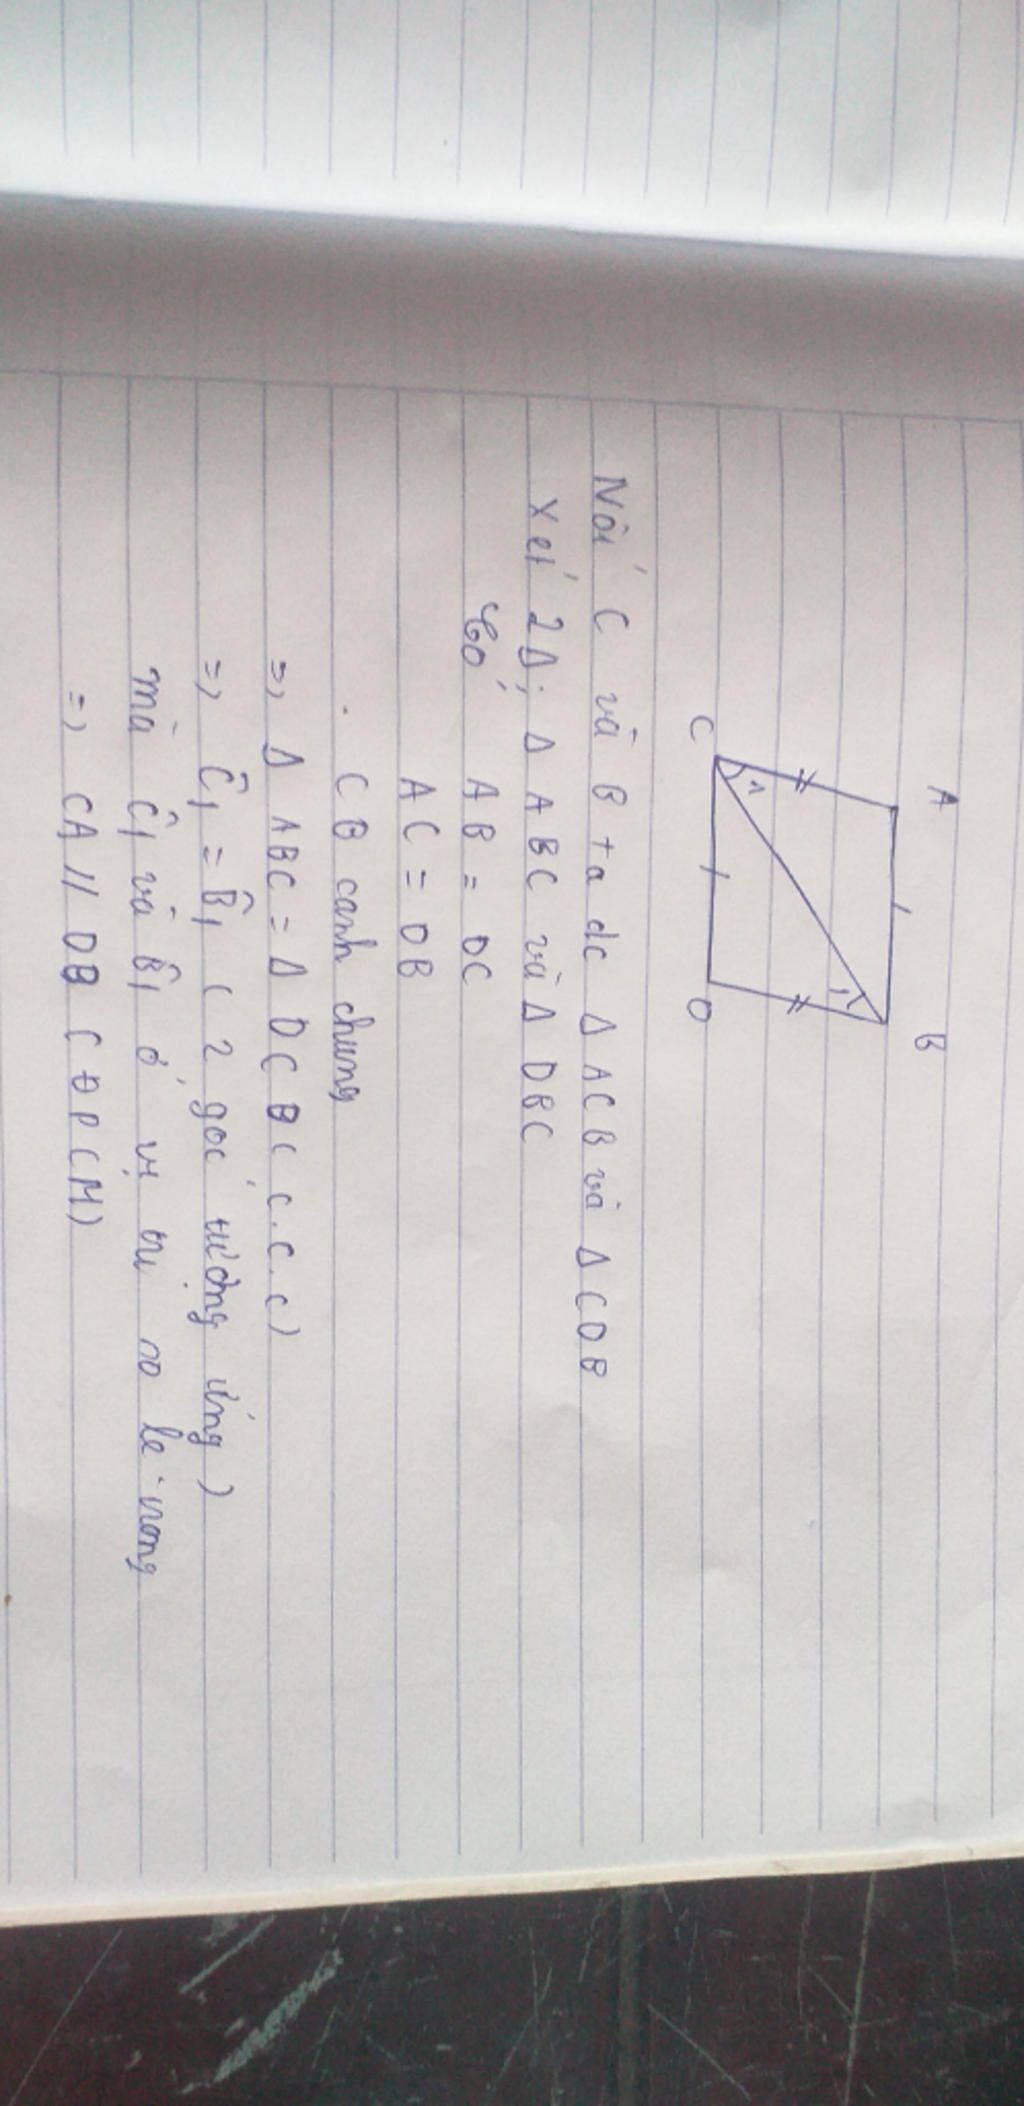 A B
C D
1
1
Nối C và B ta dc Δ ACB và Δ CDB
Xét 2Δ; Δ ABC và Δ DBC
Có AB = DC
AC = DB
CB cạnh chung
=> Δ ABC = Δ DCB ( c.c.c)
=> Ĉ1 = B̂1 ( 2 góc tương ứng )
mà Ĉ1 và B̂1 ở vị trí so le trong
=> CA // DB ( ĐPCM)